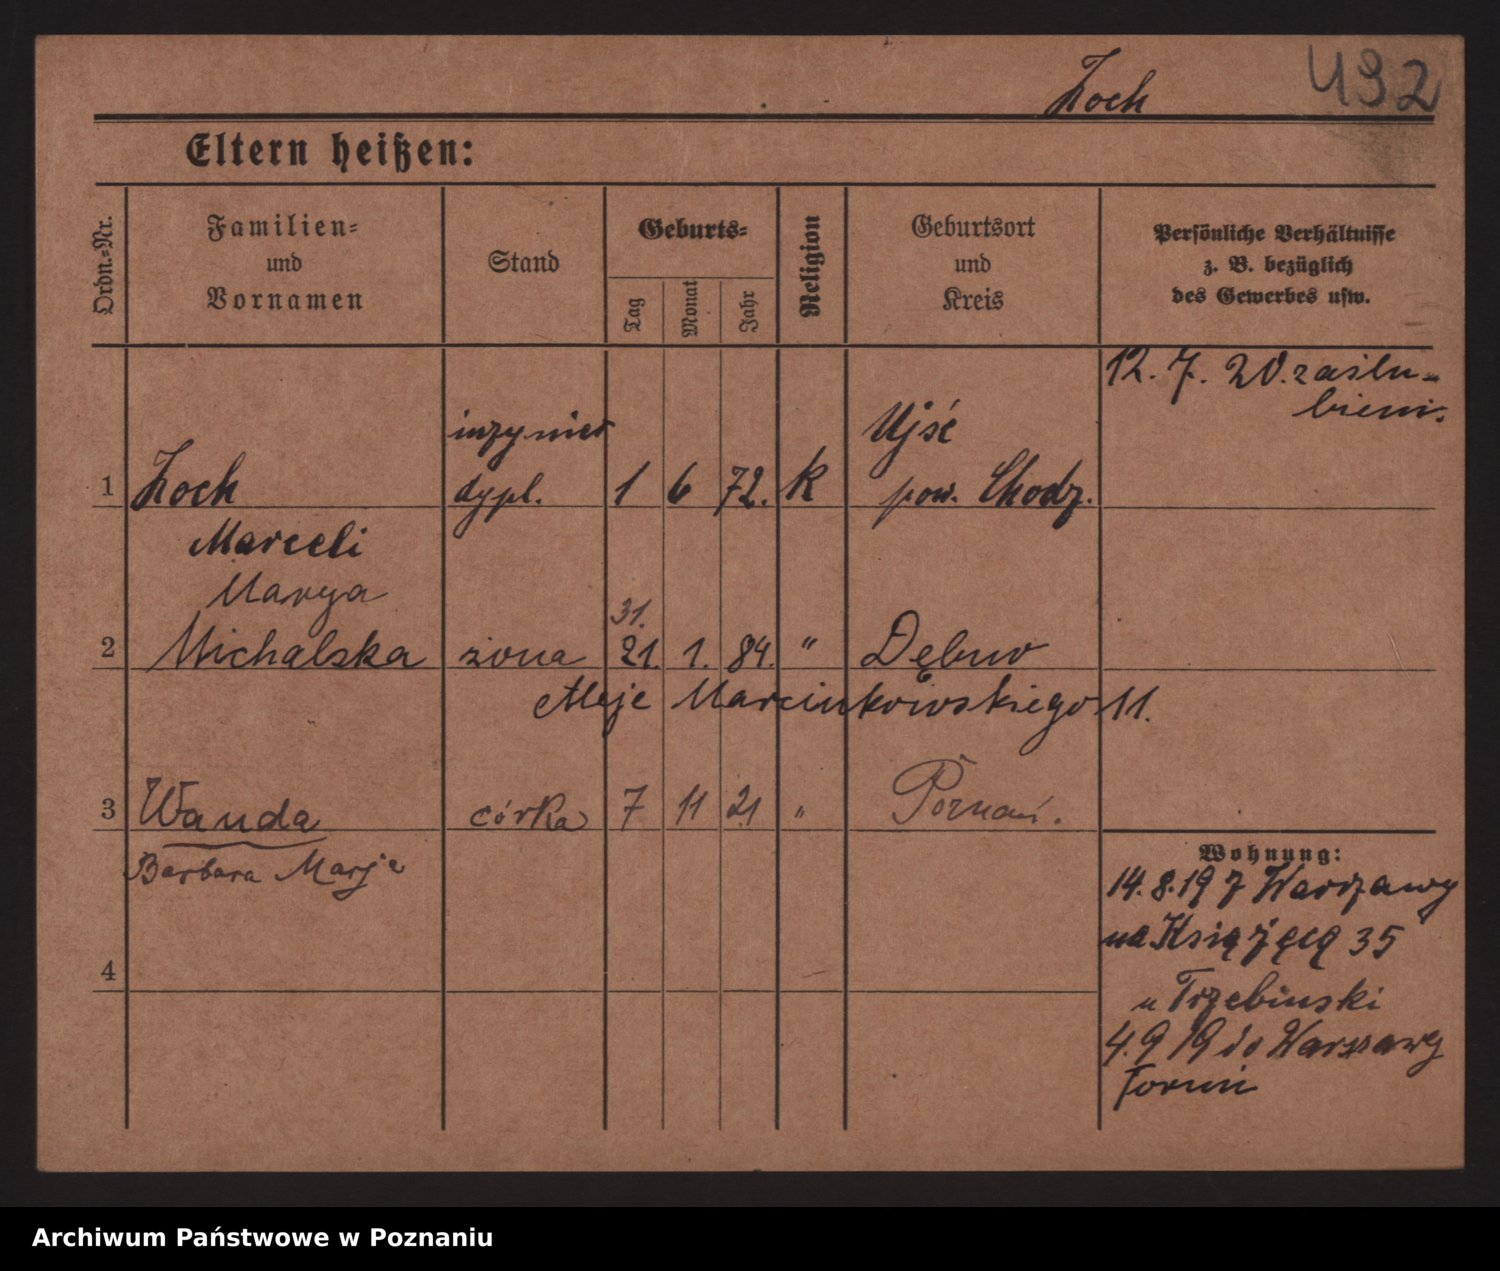 Zoch 492
Eltern heißen:
Ordn.-Nr.
Familien-
und
Vornamen
Stand
Geburts-
Tag
Monat
Jahr
Religion
Geburtsort
und
Kreis
Persönliche Verhältnisse
z. B. bezüglich
des Gewerbes usw.
12. 7. 20. zaślu-
bieni.
inżynier Ujść
1 Zoch dypl. 1 6 72. K pow. Chodz.
Marceli
Marya
31.
2 Michalska żona 21. 1. 84. " Dębno
Aleje Marcinkowskiego 11.
3 Wanda córka 7 11 21 " Poznań.
Barbara Marja
4
Wohnung:
14. 8. 19 z Warszawy
na Książęcą 35
u Trzebinski
4. 9 19 do Warszawy
Toruń
Archiwum Państwowe w Poznaniu